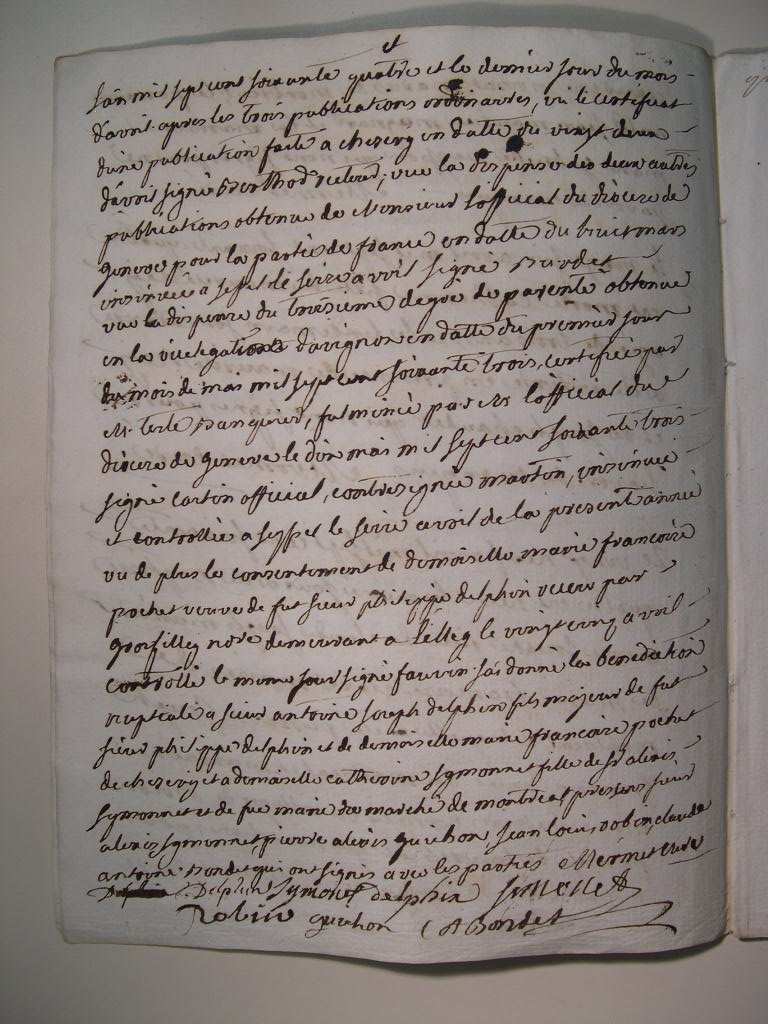 et
Lan mil sept cent soixante quatre et le dernier jour du mois
davril apres les trois publications ordinaires, vu le certificat
dune publication faite a chezery en datte du vingt deux
davril signé Berthod recteur, vue la dispense des deux autres
publications obtenue de Monsieur lofficial du diocese de
geneve pour la partie de france en datte du huit mars
insinuée a seyssel le seize avril signé Burdet
vue la dispense du troisieme degré de parenté obtenue
en la vicelegation davignon en datte du premier jour
du mois de mai mil sept cent soixante trois, certifiée par
banquier, fulminée par Mr lofficial du
diocese de geneve le dix mai mil sept cent soixante trois
signé official, contresignée marton, insinuée
et controllée a seyssel le seize avril de la presente année
vu de plus le consentement de demoiselle marie francoise
pochet veuve de fut sieur philippe delphin receu par
grosfilley nore demeurant a lélley le vingt cinq avril
controllé le meme jour signé fauvin jai donné la benediction
nuptiale a sieur antoine joseph delphin fils majeur de fut
sieur philippe delphin et de demoiselle marie francoise pochet
de chezery et a demoiselle catherine symonnet fille de sr alexis
symonnet et de fue marie du marché de montreal, presens sieur
alexis symonnet, pierre alexis guichon, jean louis robin, claude
antoine bondet qui ont signés avec les parties Mermet curé
Delphin Symonet delphin
Robin guichon C A Bondet